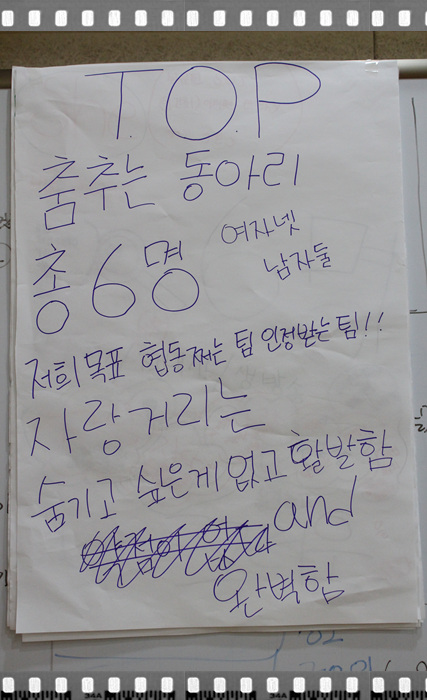 T.O.P
춤추는 동아리
총 6명 여자넷
남자둘
저희 목표 협동쩌는 팀 인정받는 팀!!
자랑거리는
숨기고 싶은게 없고 활발함
and
완벽함